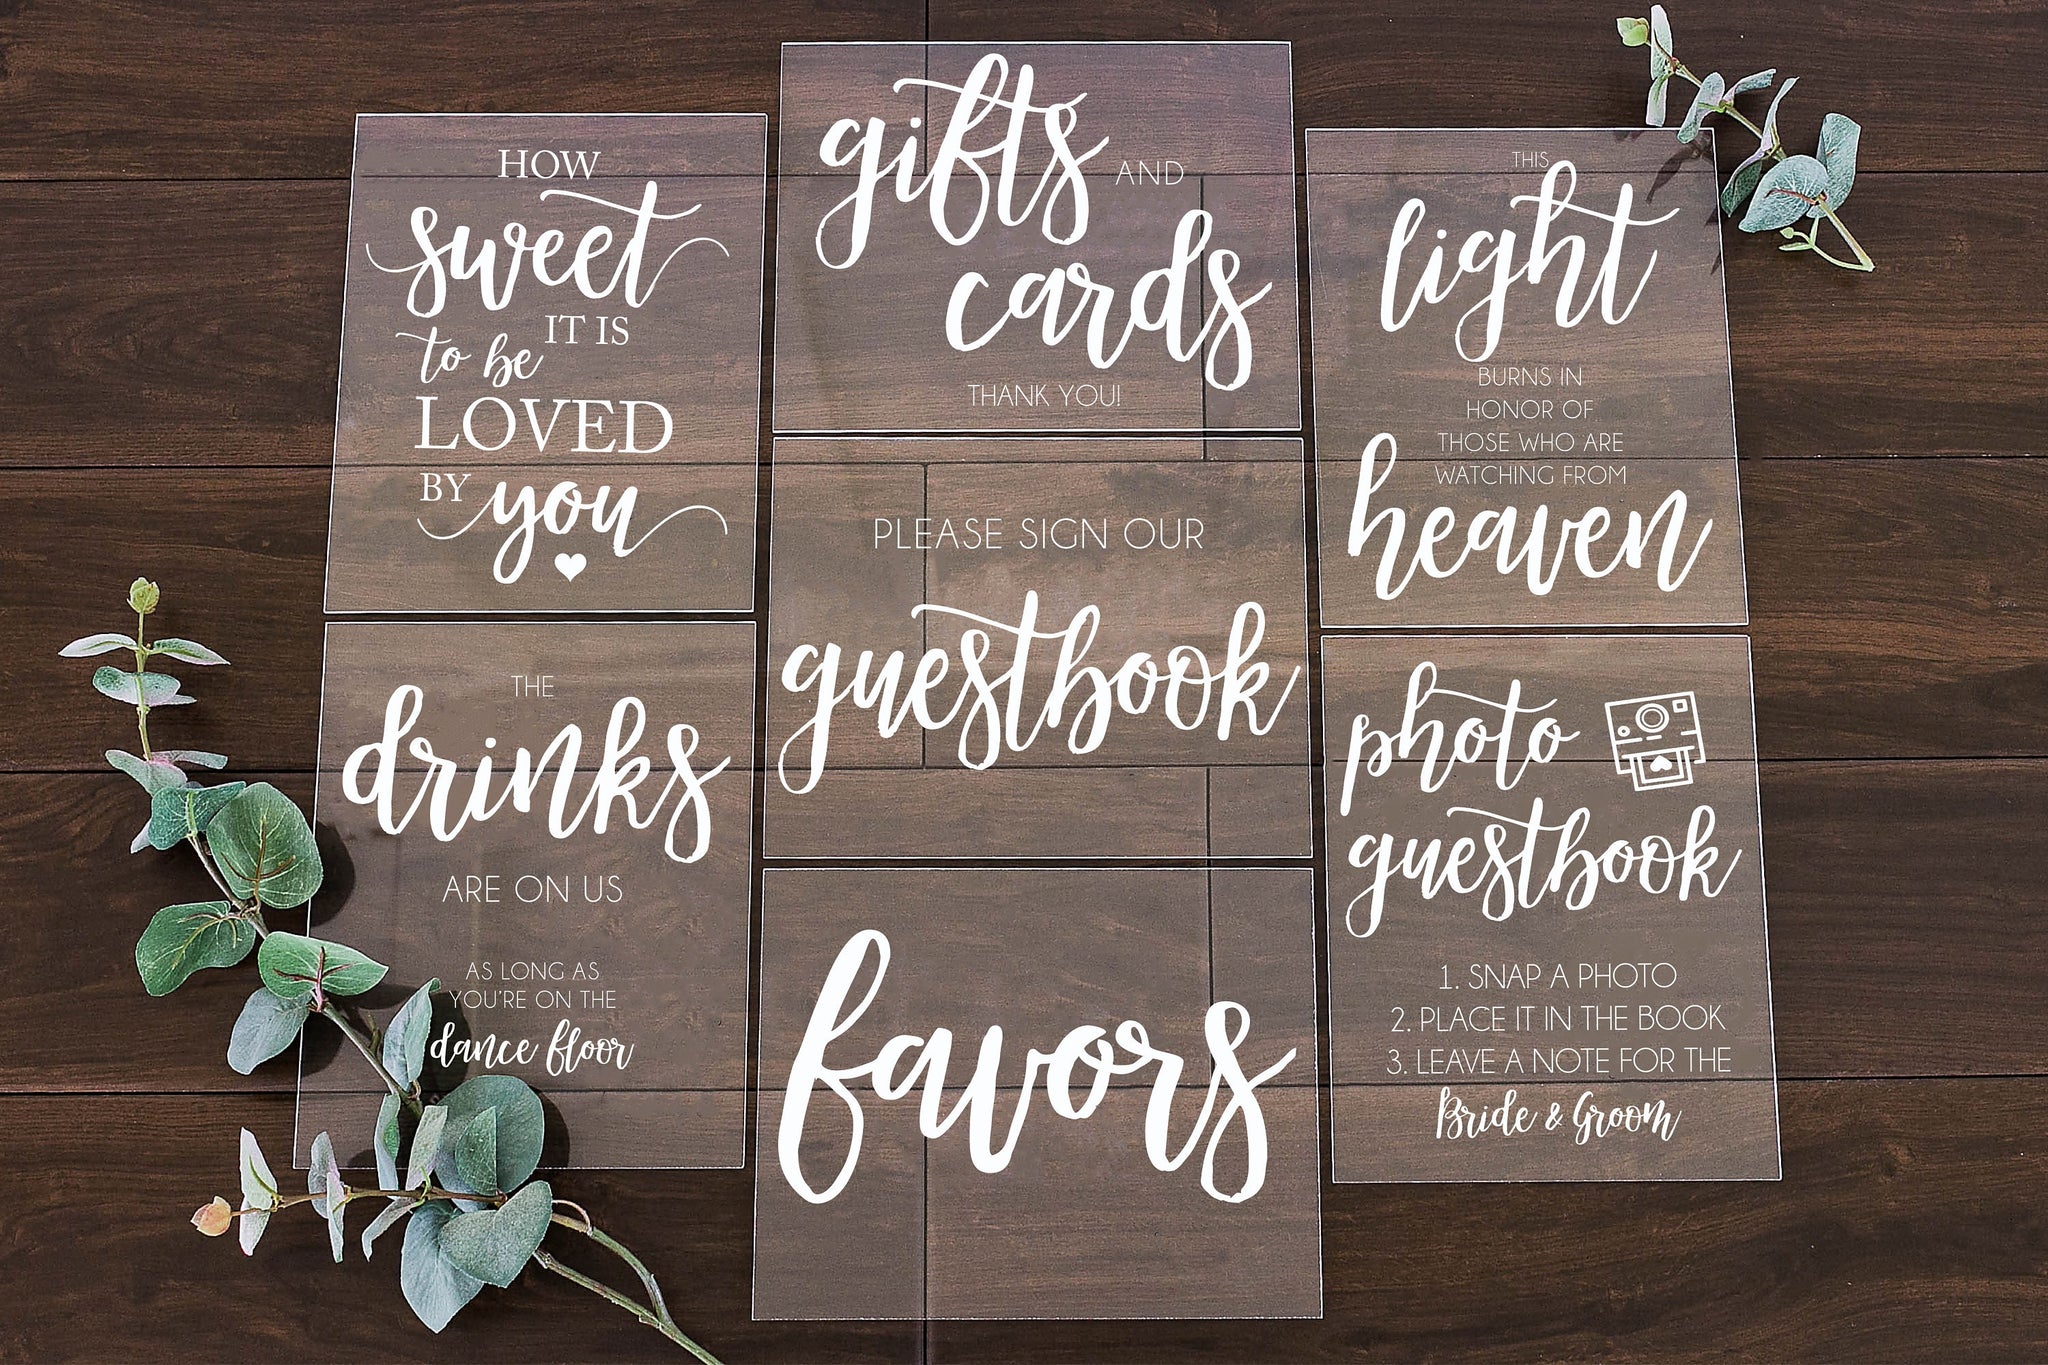 HOW
sweet
IT IS
to be
LOVED
BY you
gifts AND
cards
THANK YOU!
THIS
light
BURNS IN
HONOR OF
THOSE WHO ARE
WATCHING FROM
heaven
PLEASE SIGN OUR
guestbook
THE
drinks
ARE ON US
AS LONG AS
YOU'RE ON THE
dance floor
favors
photo
guestbook
1. SNAP A PHOTO
2. PLACE IT IN THE BOOK
3. LEAVE A NOTE FOR THE
Bride & Groom